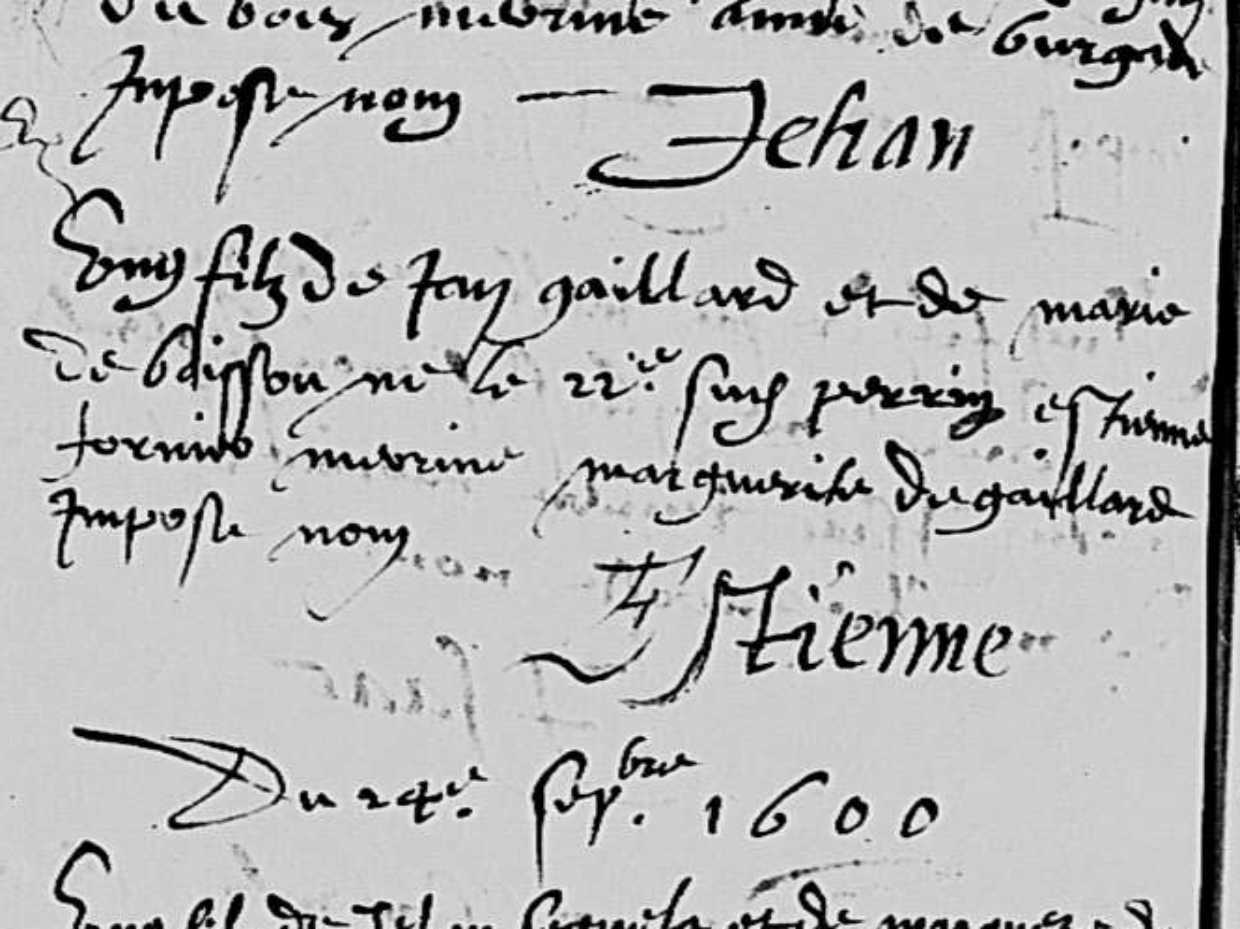 du bois meyrine anne de burgade
Impose nom — Jehan
Ung filz de Jan gaillard et de marie
de boisson ne le 22e such perrin estienne
fornier meyrine marguerite de gaillard
Impose nom
Estienne
Du 24e sepbre 1600
Ung fil de